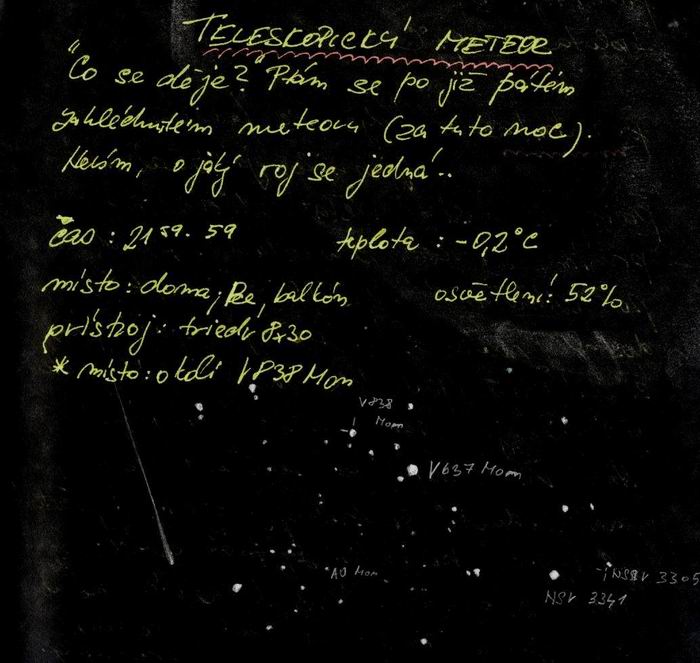 TELESKOPICKÝ METEOR
"Co se děje?" Ptám se po již pátém
zahlédnutém meteoru (za tuto noc).
Nevím, o jaký roj se jedná..
čas : 21 59. 59
teplota : -0,2°C
místo: doma, Pce, balkón
osvětlení: 52%
přístroj: triedr 8x30
* místo: okolí V838 Mon
V838
Mon
V637 Mon
AU Mon
NSV 3305
NSV 3341